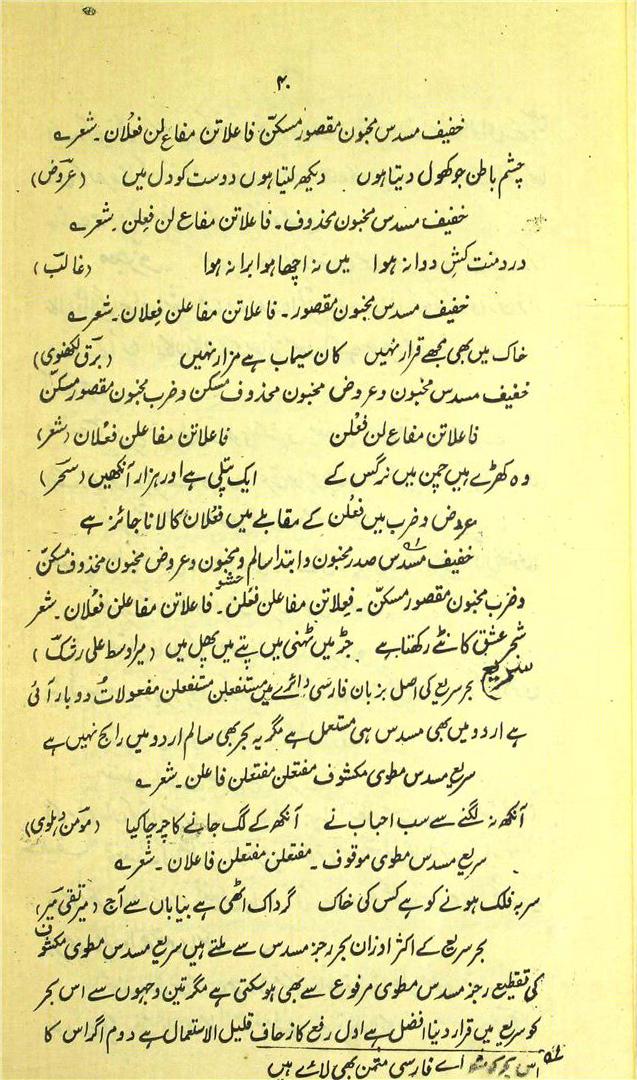 ۴۰
خفیف مسدس مخبون مقصور مسکّن فاعلاتن مفاع لن فعلان ۔ شعر ے
چشم باطن جو کھول دیتا ہوں دیکھ لیتا ہوں دوست کو دل میں (عروض)
خفیف مسدس مخبون محذوف ۔ فاعلاتن مفاع لن فعِلن ۔ شعر ے
درد منت کشِ دوا نہ ہوا میں نہ اچھا ہوا برا نہ ہوا (غالب)
خفیف مسدس مخبون مقصور ۔ فاعلاتن مفاعلن فعِلان ۔ شعر ے
خاک میں بھی مجھے قرار نہیں کان سیماب ہے مزار نہیں (برق لکھنوی)
خفیف مسدس مخبون و عروض مخبون محذوف مسکن و ضرب مخبون مقصور مسکّن
فاعلاتن مفاع لن فعْلن فاعلاتن مفاعلن فعْلان (شعر)
وہ کھڑے ہیں چمن میں نرگس کے ایک پتلی ہے اور ہزار آنکھیں (سحر)
عروض و ضرب میں فعْلن کے مقابلے میں فعْلان کا لانا جائز ہے
خفیف مسدس صدر مخبون و ابتدا سالم و مخبون و عروض مخبون محذوف مسکّن
و ضرب مخبون مقصور مسکّن ۔ فعِلاتن مفاعلن فعْلن ۔ فاعلاتن مفاعلن فعْلان ۔ شعر
حشو
شجرِ عشق کانٹے رکھتا ہے جڑ میں ٹہنی میں پتے میں پھل میں (میر اوسط علی رشک)
سریع بحر سریع کی اصل بزبان فارسی دائرے میں مستفعلن مستفعلن مفعولاتُ دو بار آئی
ہے اردو میں بھی مسدس ہی مستعمل ہے مگر یہ بحر بھی سالم اردو میں رائج نہیں ہے
سریع مسدس مطوی مکشوف مفتعلن مفتعلن فاعلن ۔ شعر ے
آنکھ نہ لگنے سے سب احباب نے آنکھ کے لگ جانے کا چرچا کیا (مومن دہلوی)
سریع مسدس مطوی موقوف ۔ مفتعلن مفتعلن فاعلان ۔ شعر ے
سر بہ فلک ہونے کو ہے کس کی خاک گرد اک اٹھی ہے بیاباں سے آج (میر تقی میر)
بحر سریع کے اکثر اوزان بحر رجز مسدس سے ملتے ہیں سریع مسدس مطوی مکشوف
کی تقطیع رجز مسدس مطوی مرفوع سے بھی ہو سکتی ہے مگر تین وجہوں سے اس بحر
کو سریع میں قرار دینا افضل ہے اول رفع کا زحاف قلیل الاستعمال ہے دوم اگر اس کا
اس بحر کو اے فارسی مثمن بھی لائے ہیں